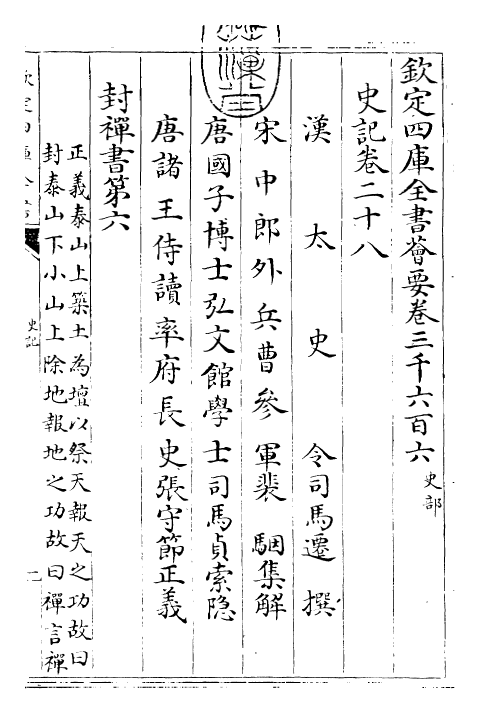 欽定四庫全書薈要卷三千六百六 史部
史記卷二十八
漢太史令司馬遷撰
宋中郎外兵曹參軍裴駰集解
唐國子博士弘文館學士司馬貞索隱
唐諸王侍讀率府長史張守節正義
封禪書第六
正義泰山上築土為壇以祭天報天之功故曰
封泰山下小山上除地報地之功故曰禪言禪
史記